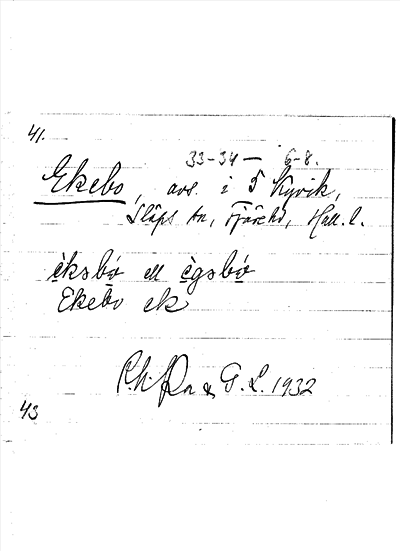 41.
33-34 — 6-8.
Ekebo, avs. i 5 Kyvik,
Släps sn, Fjäre hd, Hall. l.
èksbo̤ ell ègsbo̤
Ekebo ek
&amp; G. L. 1932
43